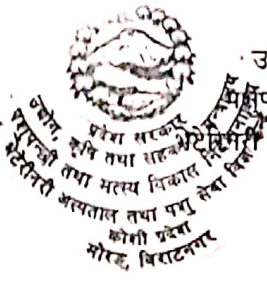 प्रदेश सरकार
उद्योग, कृषि तथा सहकारी मन्त्रालय
पशुपन्छी तथा मत्स्य विकास निर्देशनालय
भेटेरिनरी अस्पताल तथा पशु सेवा विज्ञ
कोशी प्रदेश
मोरङ, विराटनगर
उ
भेटेरिनरी